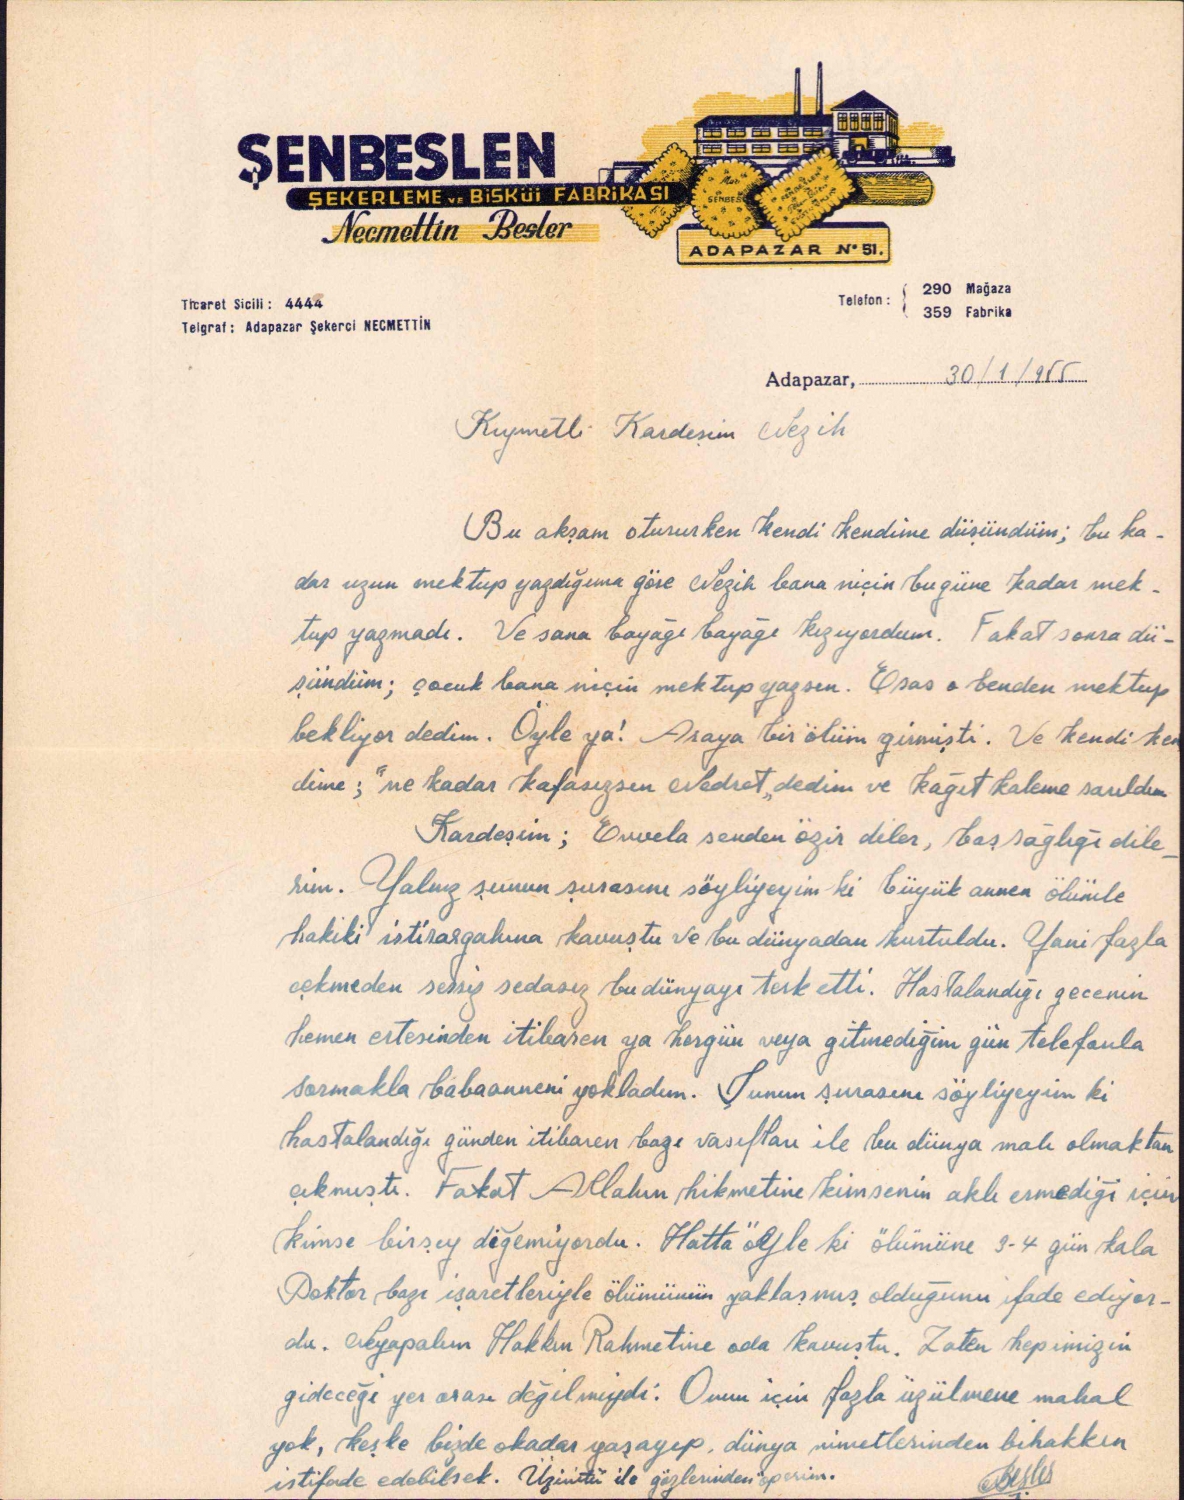 ŞENBESLEN
ŞEKERLEME VE BİSKÜİ FABRİKASI
Necmettin Besler
ADAPAZAR Nº 51.
Ticaret Sicili : 4444
Telgraf : Adapazar Şekerci NECMETTİN
Telefon : 290 Mağaza
359 Fabrika
Adapazar, 30/1/955
Kıymetli Kardeşim Nezih
Bu akşam otururken kendi kendime düşündüm; bu ka-
dar uzun mektup yazdığıma göre Nezih bana niçin bugüne kadar mek-
tup yazmadı. Ve sana bayağı bayağı kızıyordum. Fakat sonra dü-
şündüm; çocuk bana niçin mektup yazsın. Esas o benden mektup
bekliyor dedim. Öyle ya! Araya bir ölüm girmişti. Ve kendi ken
dime; "ne kadar kafasızsın Nedret„ dedim ve kağıt kaleme sarıldım
Kardeşim; Evvela senden özir diler, baş sağlığı dile-
rim. Yalnız şunun şurasını söyliyeyim ki büyük annen ölümle
hakiki istirargahına kavuştu ve bu dünyadan kurtuldu. Yani fazla
çekmeden sessiz sedasız bu dünyayı terk etti. Hastalandığı gecenin
hemen ertesinden itibaren ya hergün veya gitmediğim gün telefonla
sormakla babaanneni yokladım. Şunun şurasını söyliyeyim ki
hastalandığı günden itibaren bazı vasıfları ile bu dünya malı olmaktan
çıkmıştı. Fakat Allahın hikmetine kimsenin aklı ermediği için
kimse birşey diğemiyordu. Hatta öyle ki ölümüne 3-4 gün kala
Doktor bazı işaretleriyle ölümünün yaklaşmış olduğunu ifade ediyor-
du. Neyapalım Hakkın Rahmetine oda kavuştu. Zaten hepimizin
gideceği yer orası değilmiydi. Onun için fazla üzülmene mahal
yok, keşke bizde okadar yaşayıp, dünya nimetlerinden bihakkın
istifade edebilsek. Üzüntü ile gözlerinden öperim.
NBesler